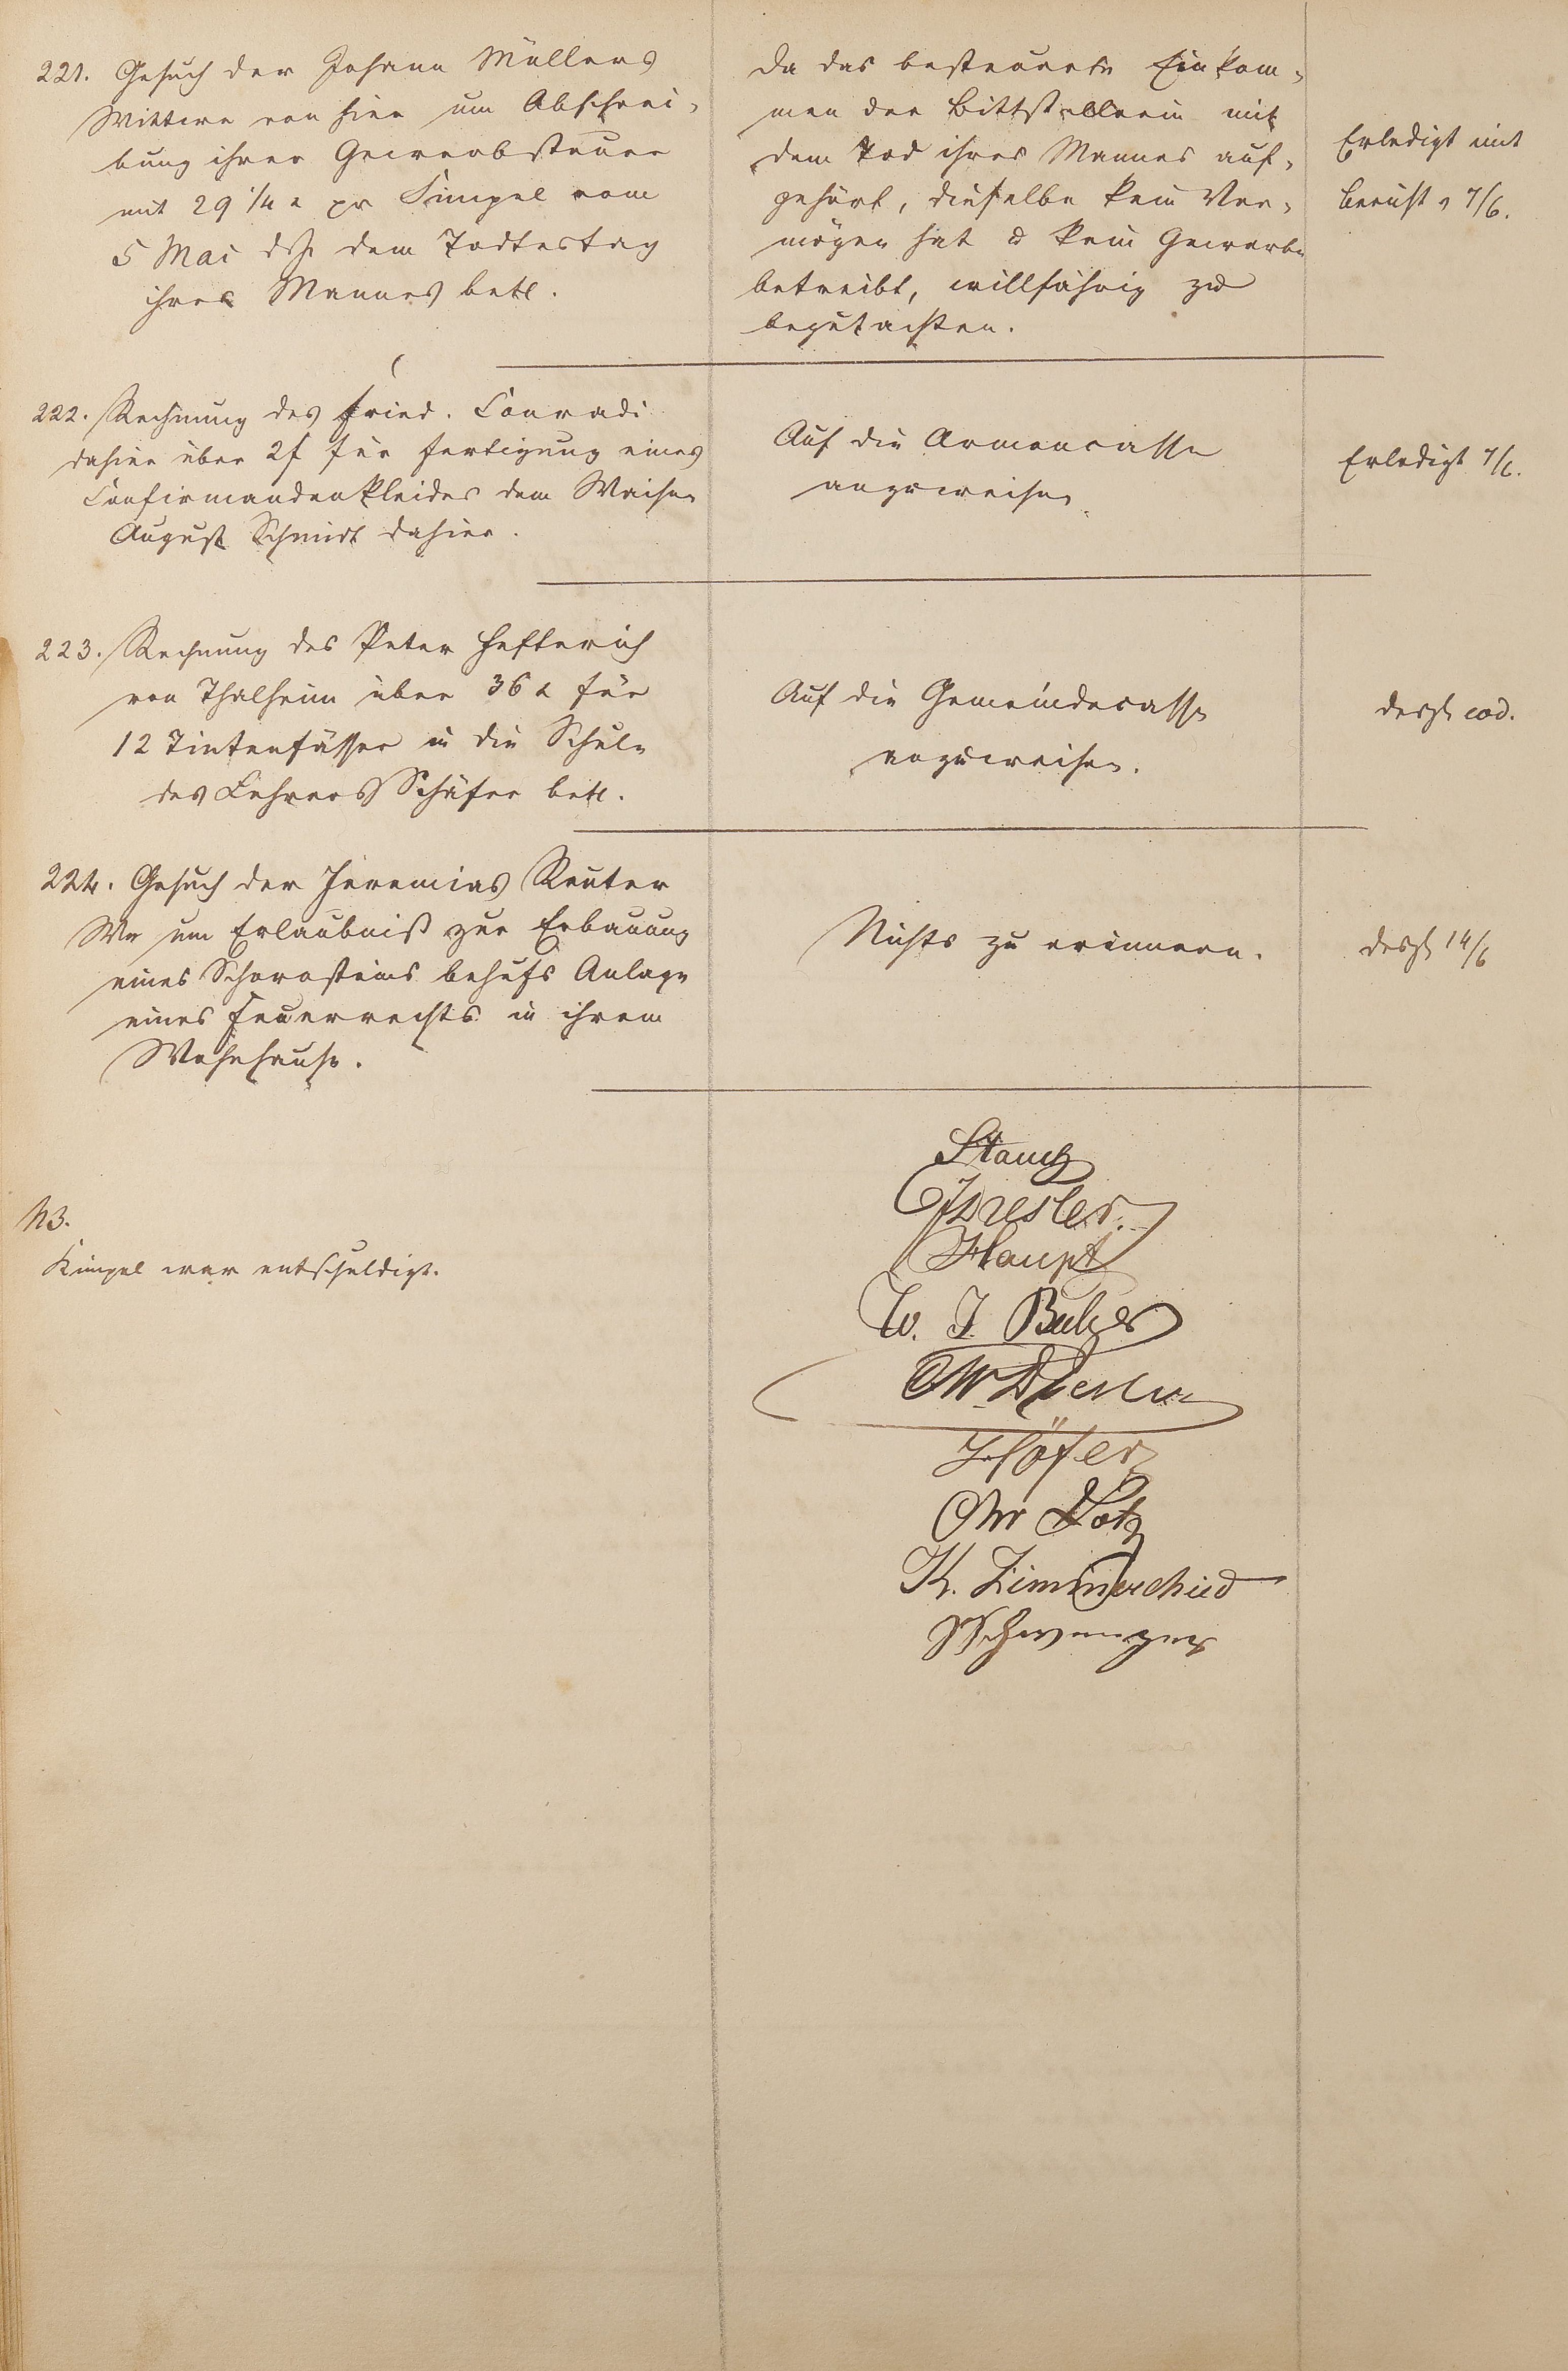 221. Gesuch der Johann Müllers
Wittwe von hier um Abschrei-
bung ihrer Gewerbsteuer
mit 29 1/4 x pr Simpel vom
5 Mai d. J. dem Todtestag
ihres Mannes betr.
Da das besteuerte Einkom-
men der Bittstellerin mit
dem Tod ihres Mannes auf-
gehört, dieselbe kein Ver-
mögen hat & kein Gewerbe
betreibt, willfährig zu
begutachten.
Erledigt mit
Bericht v 7/6.
222. Rechnung des Fried. Conradi
dahier über 2 f für Fertigung eines
Confirmandenkleides dem Waisen
August Schmidt dahier.
Auf die Armencasse
anzuweisen
Erledigt 7/6.
223. Rechnung des Peter Hefterich
von Thalheim über 36 x für
12 Tintenfässer in die Schule
des Lehrers Schäfer betr.
Auf die Gemeindecasse
anzuweisen.
desgl. eod.
224. Gesuch der Jeremias Reuter
We um Erlaubniß zur Erbauung
eines Schornsteins behufs Anlage
eines Feuerrechts in ihrem
Wohnhause.
Nichts zu erinnern.
desgl 14/6
NB.
Kimpel war entschuldigt.
Stauch
Dresler.
Haupt
W. J. Bulzer
CW Dresler
Höfer
Chr Lotz
K. Zimmerschied
Schwenzer